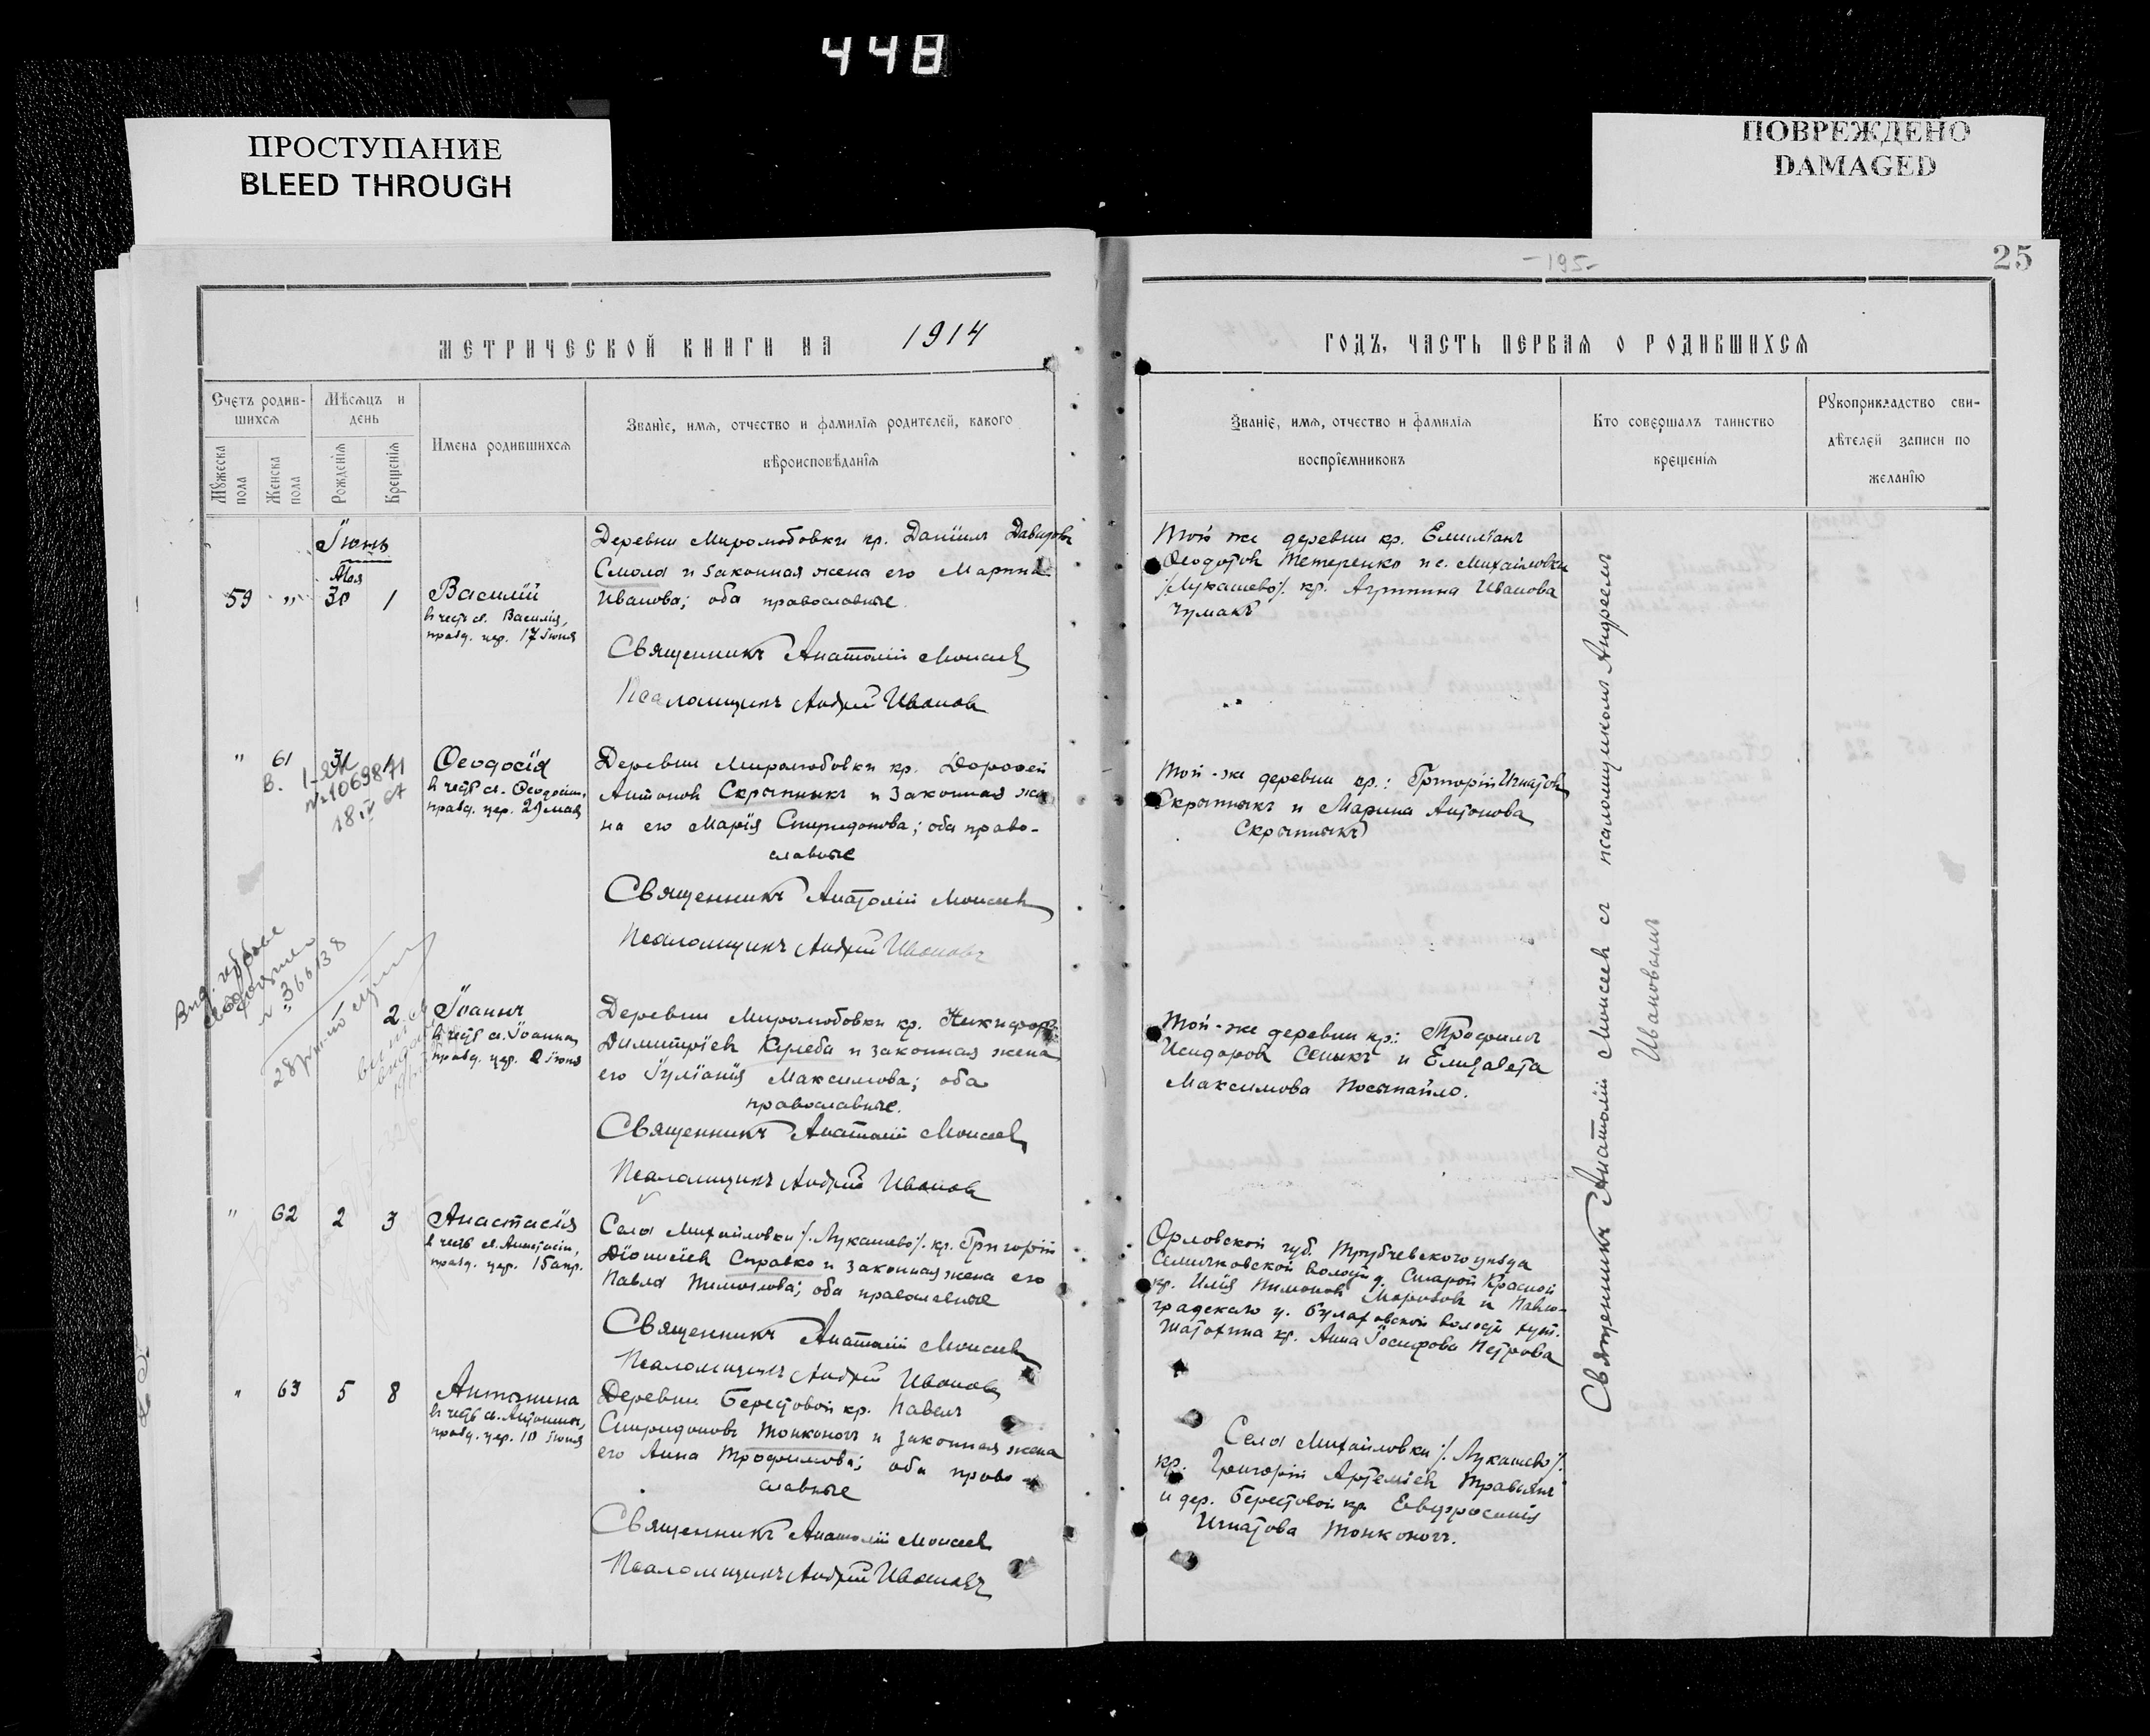 448
ПРОСТУПАНИЕ
BLEED THROUGH
ПОВРЕЖДЕНО
DAMAGED
-195-
25
МЕТРИЧЕСКОЙ КНИГИ НА 1914
Счетъ родив-
шихся
Мѣсяцъ и
день
Мужеска
пола
Женска
пола
Рожденія
Крещенія
Имена родившихся
Званіе, имя, отчество и фамилія родителей, какого
вѣроисповѣданія
Іюнь
Мая
59 " 30 1
Василій
въ честь св. Василія,
празд. цер. 17 іюня
Деревни Миролюбовки кр. Даніилъ Давидовъ
Смола и законная жена его Марина
Иванова; оба православные.
Священникъ Анатолій Моисеевъ
Псаломщикъ Андрей Ивановъ
" 61 31 1
В. I-ЯК
№ 1069871
18 IV 67
Ѳеодосія
въ честь св. Ѳеодосіи,
празд. цер. 29 мая
Деревни Миролюбовки кр. Дороѳей
Антоновъ Скрыпникъ и законная же
на его Марія Спиридонова; оба право-
славные
Священникъ Анатолій Моисеевъ
Псаломщикъ Андрей Ивановъ
2
Іоаннъ
въ честь св. Іоанна,
празд. цер. 2 іюня
Деревни Миролюбовки кр. Никифоръ
Димитріевъ Кулеба и законная жена
его Іуліанія Максимова; оба
православные.
Священникъ Анатолій Моисеевъ
Псаломщикъ Андрей Ивановъ
" 62 2 3
Анастасія
въ честь св. Анастасіи,
празд. цер. 15 апр.
Села Михайловки /Лукашево/. кр. Григорій
Діонисіевъ Справко и законная жена его
Павла Пимонова; оба православные
Священникъ Анатолій Моисеевъ
Псаломщикъ Андрей Ивановъ
" 63 5 8
Антонина
въ честь св. Антонины,
празд. цер. 10 іюня
Деревни Берестовой кр. Павелъ
Спиридоновъ Тонконогъ и законная жена
его Анна Трофимова; оба право-
славные
Священникъ Анатолій Моисеевъ
Псаломщикъ Андрей Ивановъ
ГОДЪ, ЧАСТЬ ПЕРВАЯ О РОДИВШИХСЯ
Званіе, имя, отчество и фамилія
воспріемниковъ
Кто совершалъ таинство
крещенія
Рукоприкладство сви-
дѣтелей записи по
желанію
Той же деревни кр. Емиліанъ
Ѳеодотовъ Тетеренко и с. Михайловки
/Лукашево/. кр. Агриппина Иванова
Чумакъ
Той-же деревни кр.: Григорій Игнатовъ
Скрыпникъ и Марина Антонова
Скрыпникъ
Той-же деревни кр.: Трофимъ
Исидоровъ Сеныкъ и Елизавета
Максимова Посыпайло.
Орловской губ. Трубчевского уѣзда
Семячковской волости д. Старой Красной
кр. Илія Пимоновъ Морозовъ и Павло-
градскаго у. Булаховской волости хут.
кр. Анна Іосифова Петрова
Села Михайловки /Лукашево/.
кр. Григорій Артеміевъ Травянъ
и дер. Берестовой кр. Евфросинія
Игнатова Тонконогъ.
Священникъ Анатолій Моисеевъ съ псаломщикомъ Андреемъ
Ивановымъ